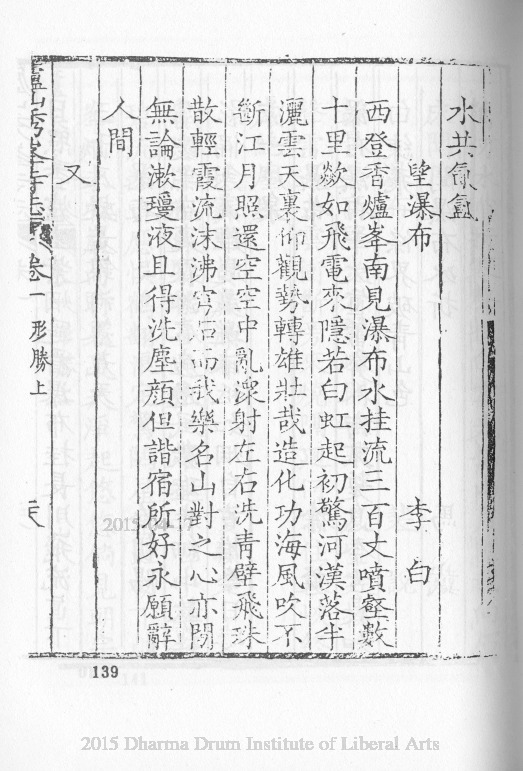 水共氤氳
望瀑布 李白
西登香爐峯南見瀑布水挂流三百丈噴壑數
十里歘如飛電來隱若白虹起初驚河漢落半
灑雲天裏仰觀勢轉雄壯哉造化功海風吹不
斷江月照還空空中亂潨射左右洗青壁飛珠
散輕霞流沫沸穹石而我樂名山對之心亦閒
無論漱瓊液且得洗塵顏但諧宿所好永願辭
人間
又
廬山秀峯寺志 卷一 形勝上
139
2015 Dharma Drum Institute of Liberal Arts